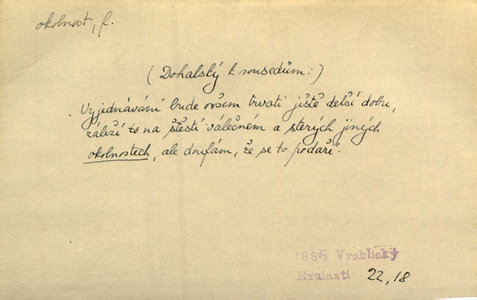 okolnost, f.
(Dohalský k sousedům:)
Vyjednávání bude ovšem trvati jistě delší dobu,
záleží to na štěstí válečném a sterých jiných
okolnostech, ale doufám, že se to podaří.
1886 Vrchlický
Exulanti 22,18